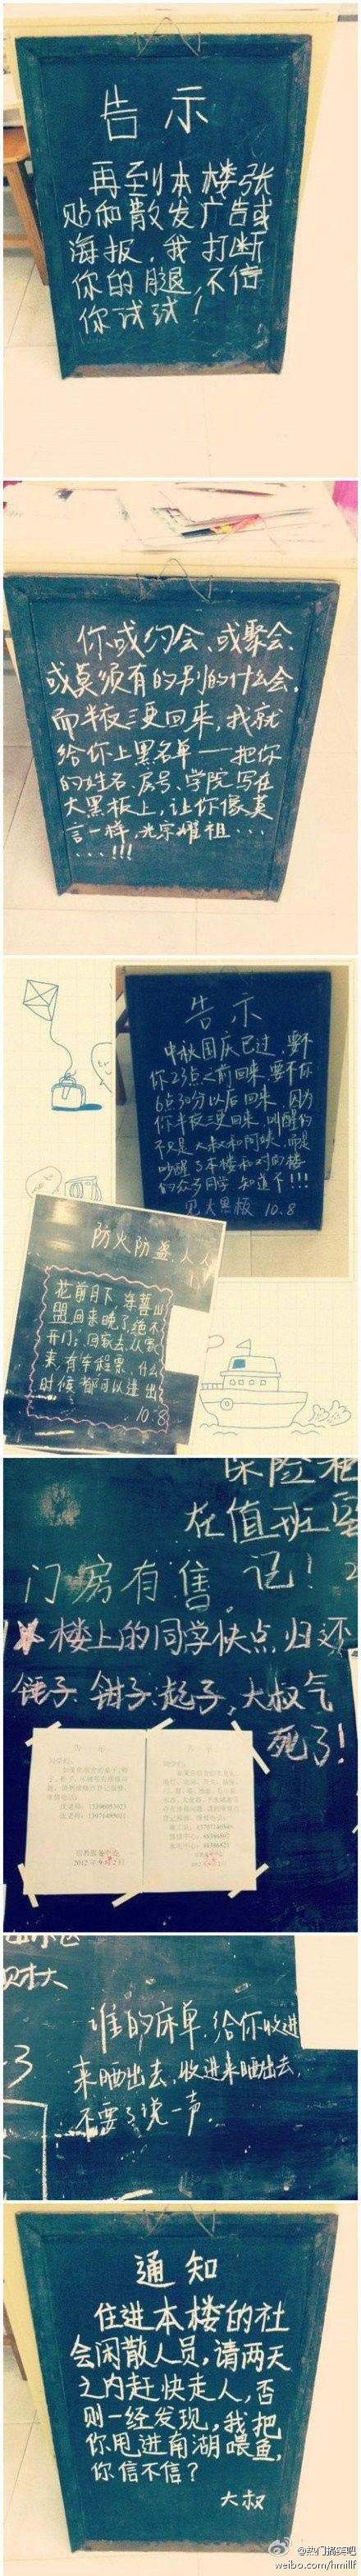 告示
再到本楼张
贴和散发广告或
海报，我打断
你的腿，不信
你试试！
你或约会、或聚会、
或莫须有的别的什么会，
而半夜三更回来，我就
给你上黑名单——把你
的姓名、房号、学院写在
大黑板上，让你像莫
言一样，光宗耀祖……
……!!!
告示
中秋国庆已过，要不
你23点之前回来，要不你
6点30分以后回来，因为
你半夜三更回来，叫醒的
不只是大叔和阿姨，而是
吵醒了本楼和对面楼
的众多同学 知道不!!!
见大黑板 10.8
防火防盗，人人
花前月下，海誓山
盟，回来晚了绝不
开门；回家去，从家
来，有车程票，什么
时候都可以进出
10.8
保险柜
在值班室
门房有售。
记！
楼上的同学快点归还
锤子、钳子、起子，大叔气
死了！
2012年9月2日
财大
3
谁的床单，给你收进
来晒出去，收进来晒出去，
不要了说一声。
通知
住进本楼的社
会闲散人员，请两天
之内赶快走人，否
则一经发现，我把
你甩进南湖喂鱼，
你信不信？
大叔
@热门搞笑吧
weibo.com/hmillf